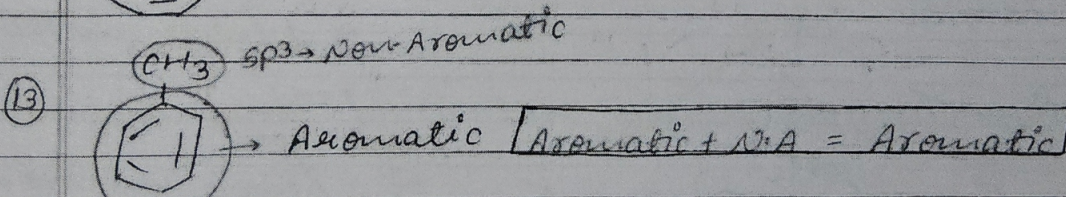 CH3 sp3→ Non-Aromatic
13
→ Aromatic [Aromatic + N.A = Aromatic]